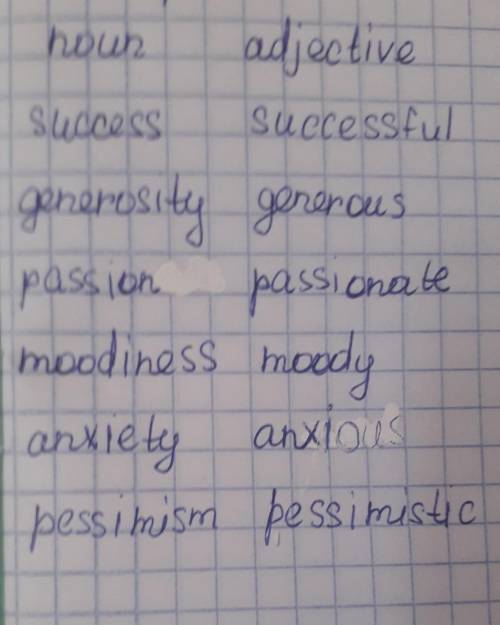 noun adjective
success successful
generosity generous
passion passionate
moodiness moody
anxiety anxious
pessimism pessimistic